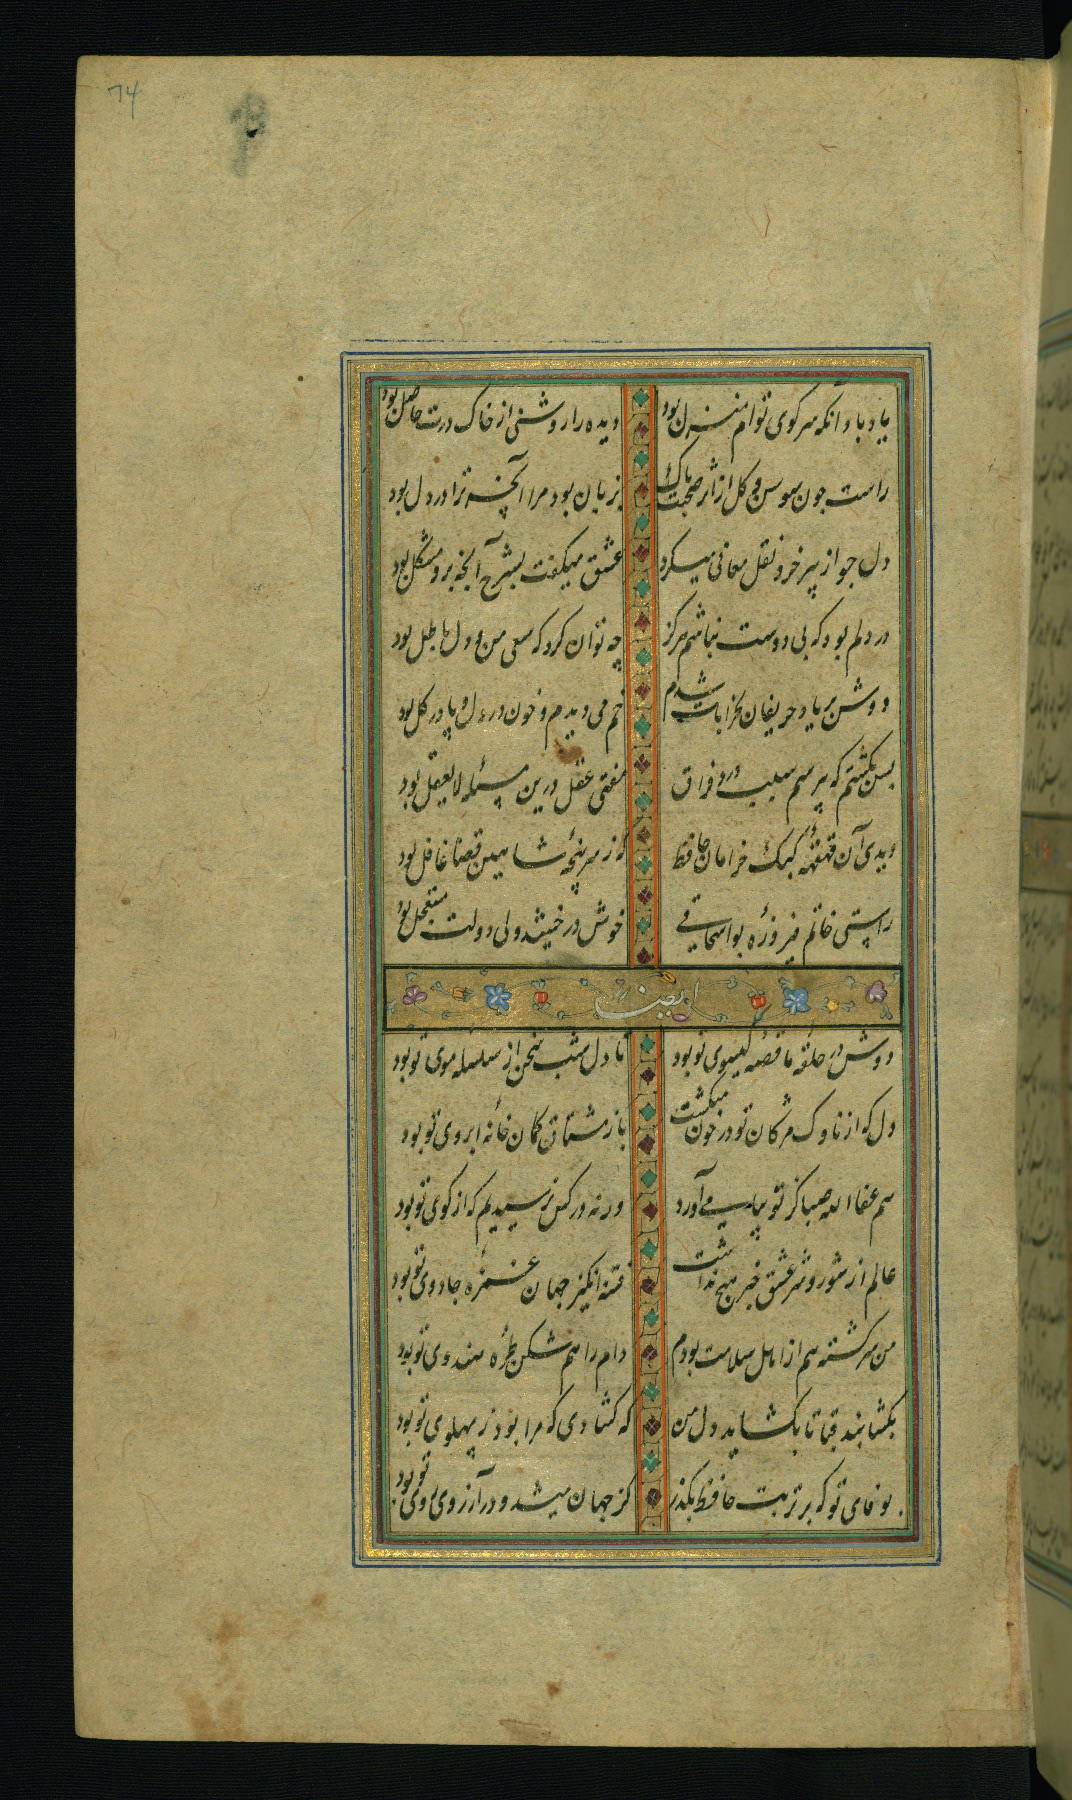 74
یاد باد آنکه سر کوی توام منزل بود دیده را روشنی از خاک درت حاصل بود
راست چون سوسن و گل از اثر صحبت پاک بر زبان بود مرا آنچه ترا در دل بود
دل چو از پیر خرد نقل معانی میکرد عشق میگفت بشرح آنچه برو مشکل بود
در دلم بود که بی دوست نباشم هرگز چه توان کرد که سعی من و دل باطل بود
دوش بر یاد حریفان بخرابات شدم خم می دیدم و خون در دل و پا در گل بود
بس بگشتم که بپرسم سبب درد فراق مفتی عقل درین مسئله لایعقل بود
دیدی آن قهقهه کبک خرامان حافظ که ز سرپنجه شاهین قضا غافل بود
راستی خاتم فیروزه بواسحاقی خوش درخشید ولی دولت مستعجل بود
ایضا له
دوش در حلقه ما قصه گیسوی تو بود تا دل شب سخن از سلسله موی تو بود
دل که از ناوک مژگان تو در خون میگشت باز مشتاق کمان خانه ابروی تو بود
هم عفا الله صبا کز تو پیامی آورد ورنه در کس نرسیدیم که از کوی تو بود
عالم از شور و شر عشق خبر هیچ نداشت فتنه انگیز جهان غمزه جادوی تو بود
من سرگشته هم از اهل سلامت بودم دام راهم شکن طره هندوی تو بود
بگشا بند قبا تا بگشاید دل من که گشادی که مرا بود ز پهلوی تو بود
بوفای تو که بر تربت حافظ بگذر کز جهان میشد و در آرزوی روی تو بود